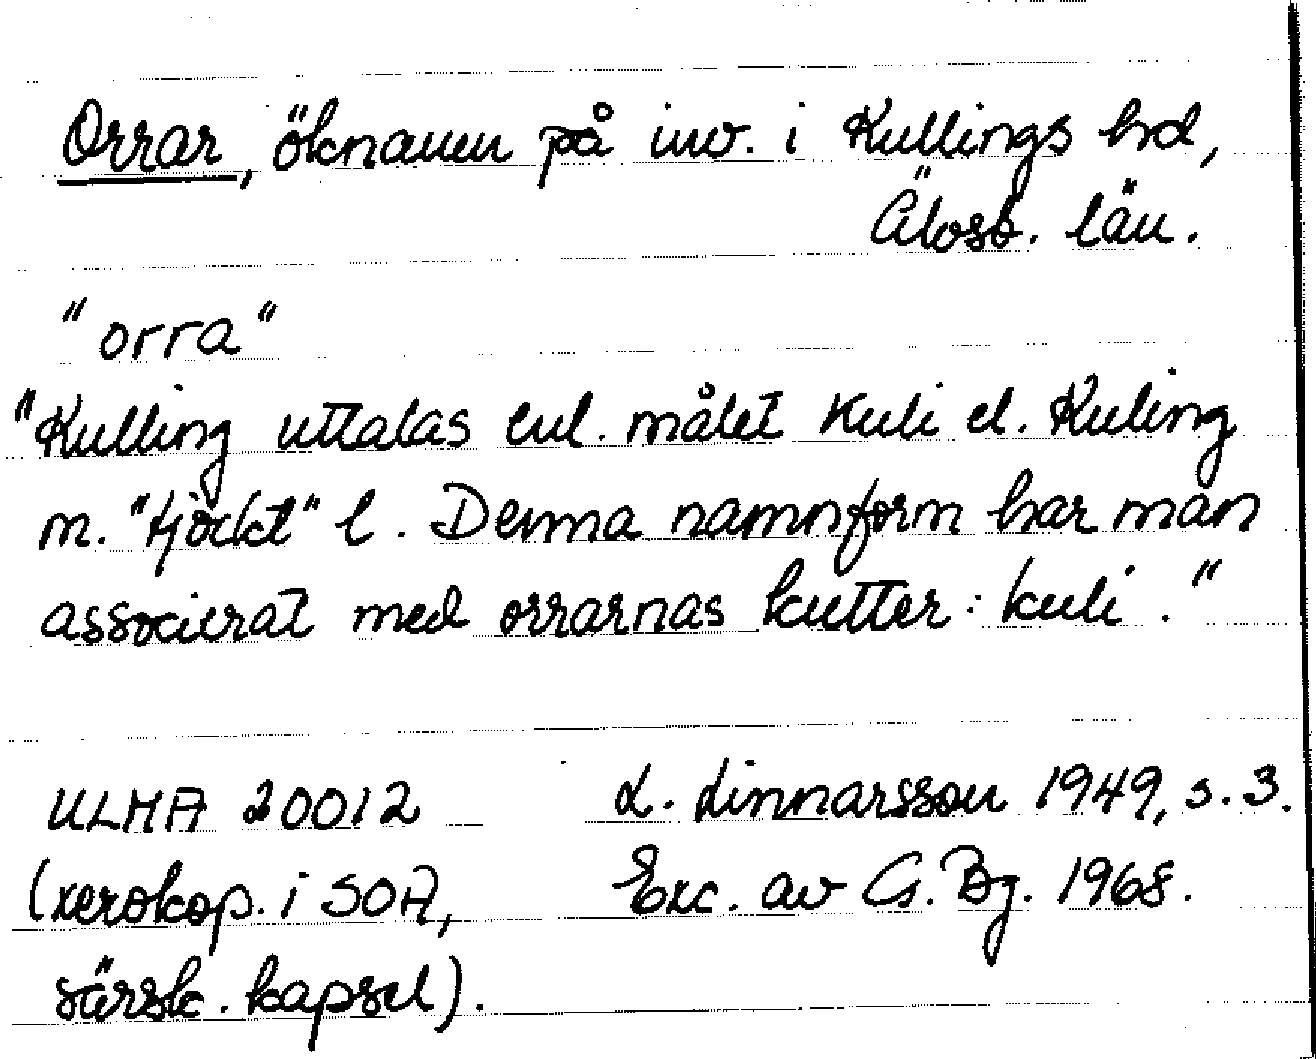 Orrar, öknamn på inv. i Kullings hd,
Älvsb. län.
"orra"
"Kulling uttalas enl. målet Kuli el. Kuling
m. "tjockt" l. Denna namnform har man
associerat med orrarnas kutter: kuli."
ULMA 20012 L. Linnarsson 1949, s. 3.
(xerokop. i SOA, Exc. av G. Bg. 1968.
särsk. kapsel).